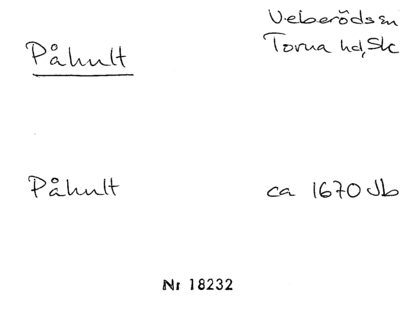 Påhult
Veberöds sn
Torna hd, Sk
Påhult
ca 1670 Jb
Nr 18232